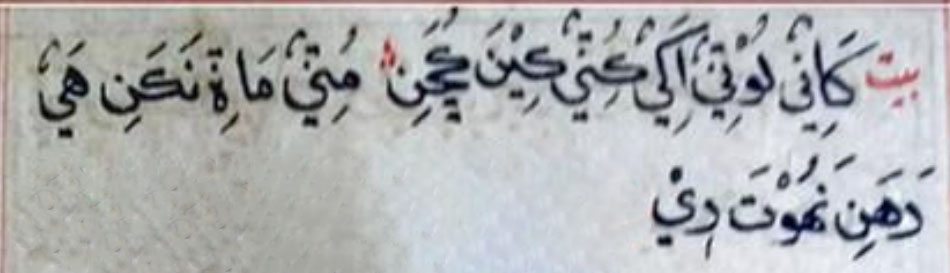 بيت كَاِنِيْ لُوْتِيْ اَكِيْ كُنِيْ كِيْنَ كُچَنِ مُتِيْ مَاةِ نَكَنِ هَيْ
دَهَنِ نُهُوْتَ دِيْ